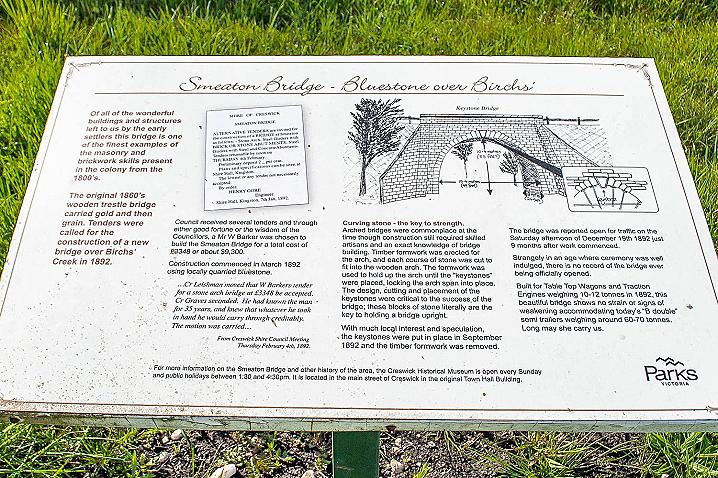 Smeaton Bridge - Bluestone over Birchs'
Of all of the wonderful
buildings and structures
left to us by the early
settlers this bridge is one
of the finest examples of
the masonry and
brickwork skills present
in the colony from the
1800's.
The original 1860's
wooden trestle bridge
carried gold and then
grain. Tenders were
called for the
construction of a new
bridge over Birchs'
Creek in 1892.
SHIRE OF CRESWICK
SMEATON BRIDGE
ALTERNATIVE TENDERS are invited for
the construction of a BRIDGE at Smeaton
as follows: - Stone Arch, Steel Girders with
BRICK OR STONE ABUTMENTS, Steel
Girders with Steel and Concrete Abutments.
Tenders returnable by noon on
THURSDAY 4th February.
Preliminary deposit 2 ½ per cent.
Plans and specifications can be seen at
Shire Hall, Kingston.
The lowest or any tender not necessarily
accepted.
By order,
HENRY GORE
Engineer.
Shire Hall, Kingston, 7th Jan, 1892.
Council received several tenders and through
either good fortune or the wisdom of the
Councillors, a Mr W Barker was chosen to
build the Smeaton Bridge for a total cost of
£3348 or about $9,300.
Construction commenced in March 1892
using locally quarried bluestone.
...Cr Leishman moved that W Barkers tender
for a stone arch bridge at £3348 be accepted.
Cr Graves seconded. He had known the man
for 35 years, and knew that whatever he took
in hand he would carry through creditably.
The motion was carried...
From Creswick Shire Council Meeting
Thursday February 4th, 1892.
Keystone Bridge
Curving stone - the key to strength.
Arched bridges were commonplace at the
time though construction still required skilled
artisans and an exact knowledge of bridge
building. Timber formwork was erected for
the arch, and each course of stone was cut to
fit into the wooden arch. The formwork was
used to hold up the arch until the "keystones"
were placed, locking the arch span into place.
The design, cutting and placement of the
keystones were critical to the success of the
bridge; these blocks of stone literally are the
key to holding a bridge upright.
With much local interest and speculation,
the keystones were put in place in September
1892 and the timber formwork was removed.
The bridge was reported open for traffic on the
Saturday afternoon of December 19th 1892 just
9 months after work commenced.
Strangely in an age where ceremony was well
indulged, there is no record of the bridge ever
being officially opened.
Built for Table Top Wagons and Traction
Engines weighing 10-12 tonnes in 1892, this
beautiful bridge shows no strain or signs of
weakening accommodating today's "B double"
semi trailers weighing around 60-70 tonnes.
Long may she carry us.
For more information on the Smeaton Bridge and other history of the area, the Creswick Historical Museum is open every Sunday
and public holidays between 1:30 and 4:30pm. It is located in the main street of Creswick in the original Town Hall Building.
Parks
VICTORIA